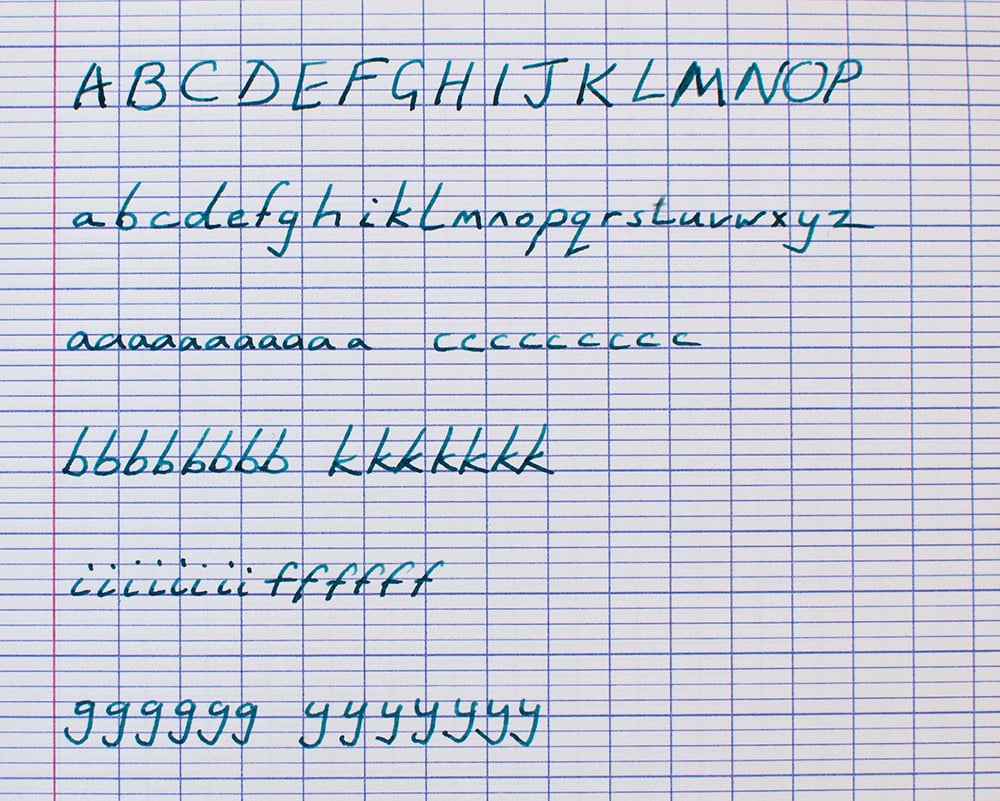 ABCDEFGHIJKLMNOP
abcdefghiklmnopqrstuvwxyz
aaaaaaaaaaa ccccccccc
bbbbbbbb kkkkkkk
iiiiiiii ffffff
gggggg yyyyyyy